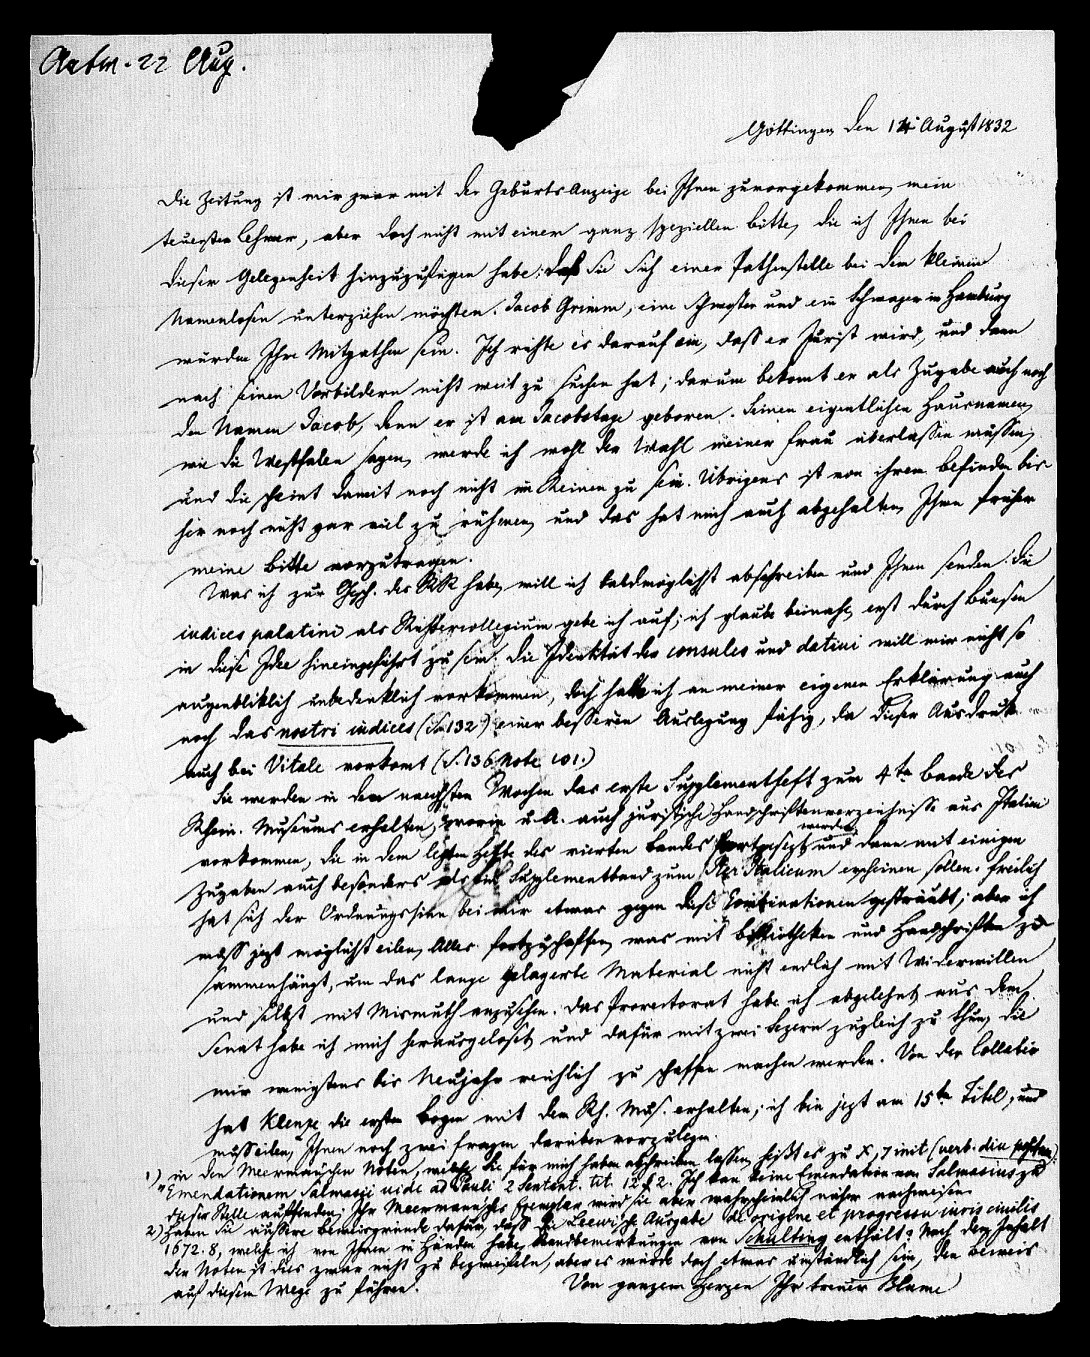 Antw. 22 Aug.
Göttingen den 14 August 1832
Die Zeitung ist mir zwar mit der Geburts Anzeige bei Ihnen zuvorgekommen, mein
teuerster Lehrer, aber doch nicht mit einer ganz speziellen Bitte, die ich Ihnen bei
dieser Gelegenheit hinzuzufügen habe: daß Sie sich einer Pathenstelle bei dem kleinen
Namenlosen unterziehen möchten. Jacob Grimm, eine Schwester und ein Schwager in Hamburg
würden Ihre Mitpathen sein. Ich richte es darauf ein, dass er Jurist wird, und dann
nach seinen Vorbildern nicht weit zu suchen hat; darum bekomt er als Zugabe auch noch
den Namen Jacob, denn er ist am Jacobstage geboren. Seinen eigentlichen Hausnamen,
wie die Westfalen sagen, werde ich wohl der Wahl meiner Frau überlassen müssen,
und die scheint damit noch nicht im Reinen zu sein. Übrigens ist von ihrem Befinden bis-
her noch nicht gar viel zu rühmen, und das hat mich auch abgehalten, Ihnen früher
meine Bitte vorzutragen.
Was ich zur Gesch. des RR habe, will ich baldmöglichst abschreiben und Ihnen senden. Die
iudices palatini als Richtercollegium gebe ich auf; ich glaube beinahe, erst durch Bunsen
in diese Idee hineingeführt zu sein. Die Identität der consules und dativi will mir nicht so
augenbliklich unbedenklich vorkommen, doch halte ich an meiner eigenen Erklärung auch
noch das nostri iudices (S. 132) einer besseren Auslegung fähig, da dieser Ausdruk
auch bei Vitale vorkomt (S. 136 Note 101.)
Sie werden in den naechsten Wochen das erste Supplementheft zum 4ten Bande des
Rhein. Museums erhalten, worin u. A. auch juristische Handschriftenverzeichnisse aus Italien
vorkommen, die in dem lezten Hefte des vierten Bandes fortgesezt werden, und dann mit einigen
Zugaben auch besonders als ein Supplementband zum Iter Italicum erscheinen sollen. Freilich
hat sich der Ordnungssinn bei mir etwas gegen diese Combinationen gesträubt; aber ich
muss jezt möglichst eilen, Alles fortzuschaffen, was mit Bibliotheken und Handschriften zu-
sammenhängt, um das lange gelagerte Material nicht endlich mit Widerwillen
und selbst mit Mismuth anzusehen. Das Prorectorat habe ich abgelehnt, aus dem
Senat habe ich mich herausgeloset, und dafür mit zwei Sezern zugleich zu thun, die
mir wenigstens bis Neujahr reichlich zu schaffen machen werden. Von der Collatio
hat Klenze die ersten Bogen mit dem Rh. Mus. erhalten; ich bin jezt am 15ten Titel, und
muss eilen, Ihnen noch zwei Fragen darüber vorzulegen.
1) in den Meermanschen Noten, welche Sie für mich haben abschreiben lassen, heißt es zu X, 7 init (verb. diu ):
"Emendationem Salmasii vide ad Pauli 2 Sentent. tit. 12 § 2. Ich kan keine Emendation von Salmasius zu
dieser Stelle auffinden; Ihr Meermansches Exemplar wird sie aber wahrscheinlich näher nachweisen.
2) Haben Sie äussere Beweisgründe dafür, dass die Leewische Ausgabe de origine et progressu iuris civilis
1672. 8, welche ich von Ihnen in Händen habe, Randbemerkungen von Schulting enthält? Nach dem Inhalt
der Noten ist dies zwar nicht zu bezweifeln, aber es würde doch etwas umständlich sein, den Beweis
auf diesem Wege zu führen.
Von ganzem Herzen Ihr treuer Blume